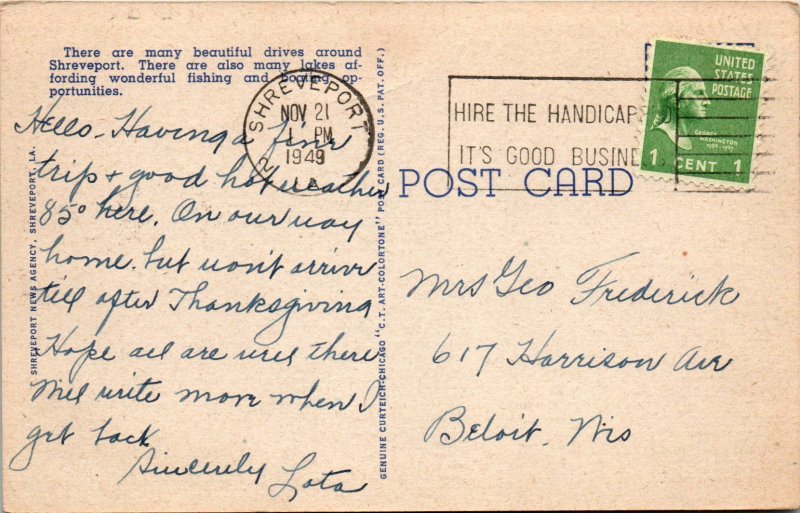 There are many beautiful drives around
Shreveport. There are also many lakes af-
fording wonderful fishing and boating op-
portunities.
Hello. Having a fine
trip + good hot weather
85° here. On our way
home. but won't arrive
till after Thanksgiving
Hope all are well there
Will write more when I
get back
Sincerely Lota
SHREVEPORT NEWS AGENCY, SHREVEPORT, LA.
GENUINE CURTEICH-CHICAGO "C.T. ART-COLORTONE" POST CARD (REG. U.S. PAT. OFF.)
SHREVEPORT
NOV 21
1 PM
1949
2 LA.
HIRE THE HANDICAPPED
IT'S GOOD BUSINESS
UNITED
STATES
POSTAGE
GEORGE
WASHINGTON
1789-1797
1 CENT 1
POST CARD
Mrs Geo Frederick
617 Harrison Ave
Beloit. Wis